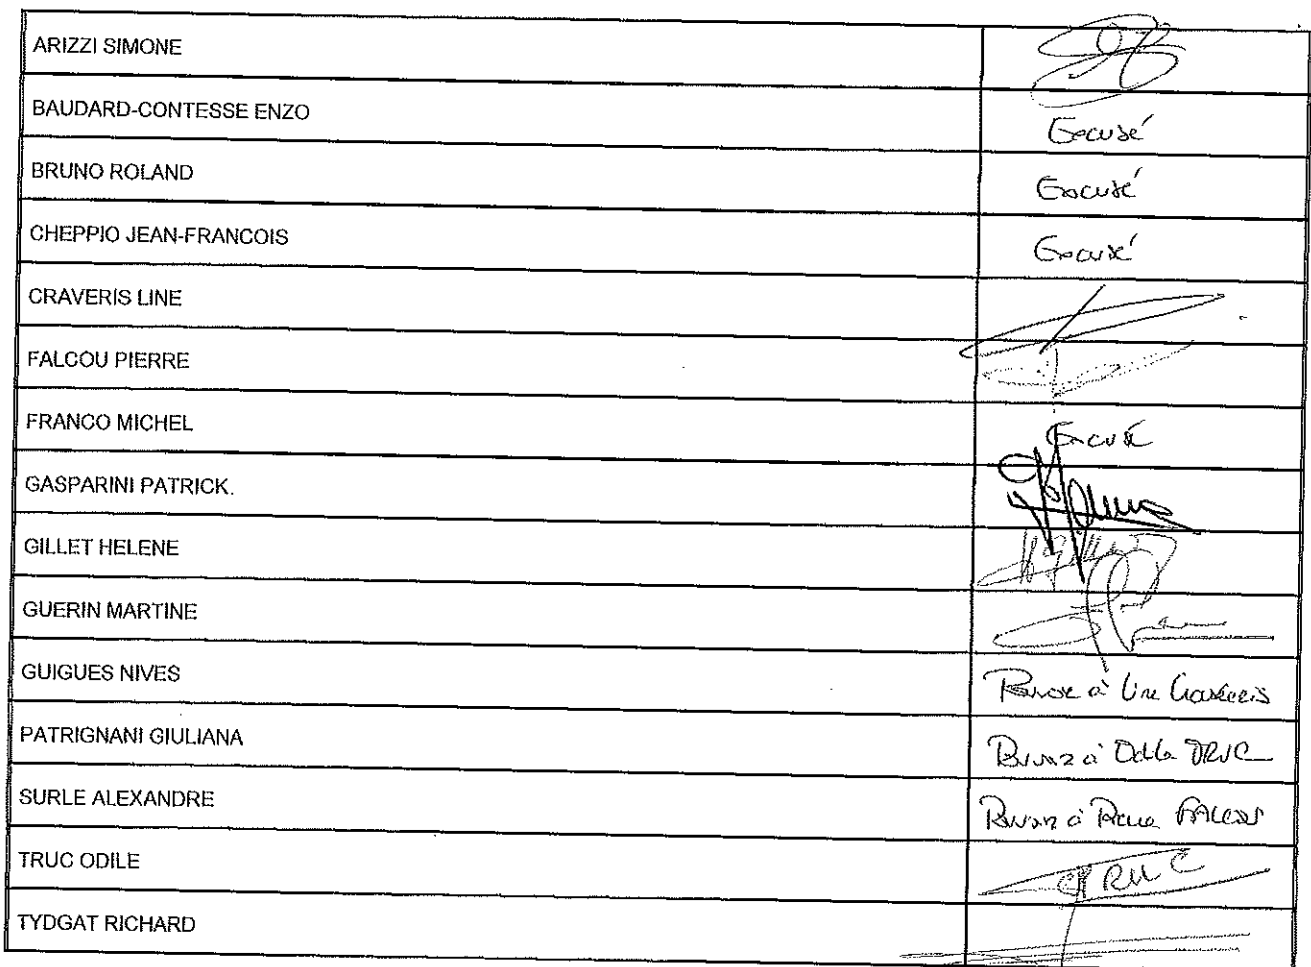 ARIZZI SIMONE
BAUDARD-CONTESSE ENZO Excusé
BRUNO ROLAND Excusé
CHEPPIO JEAN-FRANCOIS Excusé
CRAVERIS LINE
FALCOU PIERRE
FRANCO MICHEL Excusé
GASPARINI PATRICK.
GILLET HELENE
GUERIN MARTINE
GUIGUES NIVES Pouvoir à Line Craveris
PATRIGNANI GIULIANA Pouvoir à Odile TRUC
SURLE ALEXANDRE Pouvoir à Pierre FALCOU
TRUC ODILE TRUC
TYDGAT RICHARD